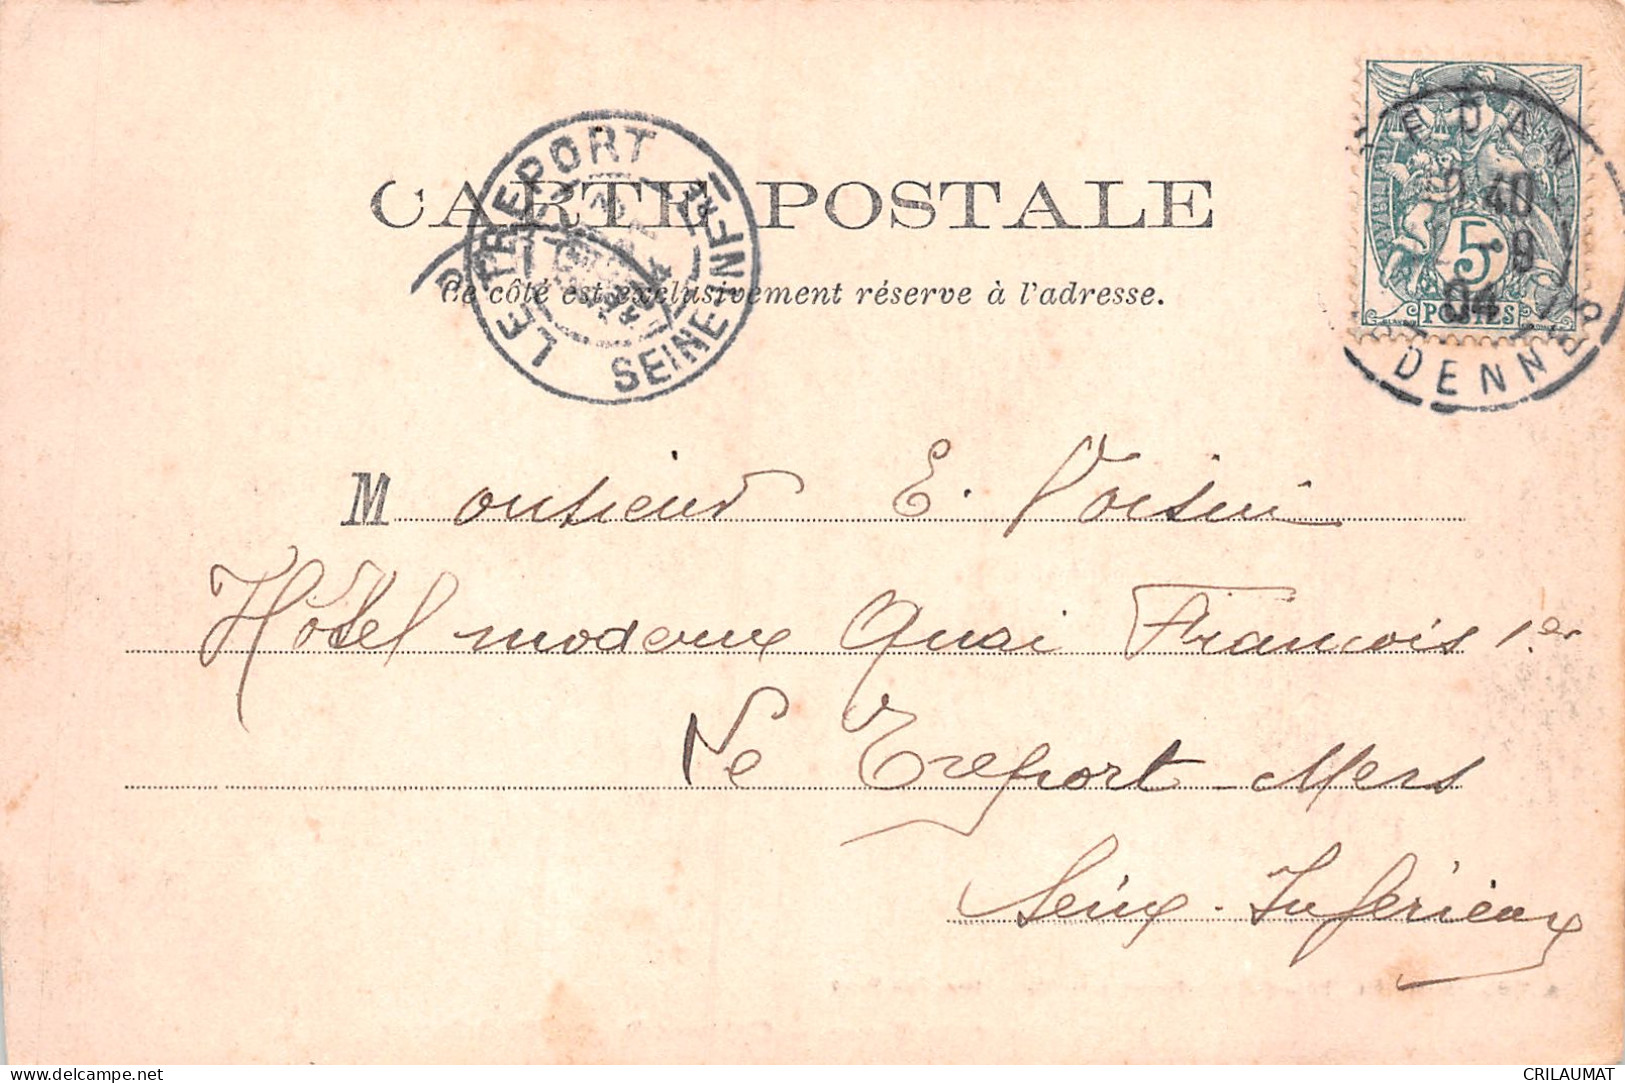 CARTE POSTALE
Ce côté est exclusivement réservé à l'adresse.
LE TREPORT
SEINE-INFRE
SEDAN
40
9
04
ARDENNES
5
POSTES
Monsieur E. Voisin
Hôtel moderne Quai François 1er
Le Tréport-Mers
Seine-Inférieure
delcampe.net
CRILAUMAT